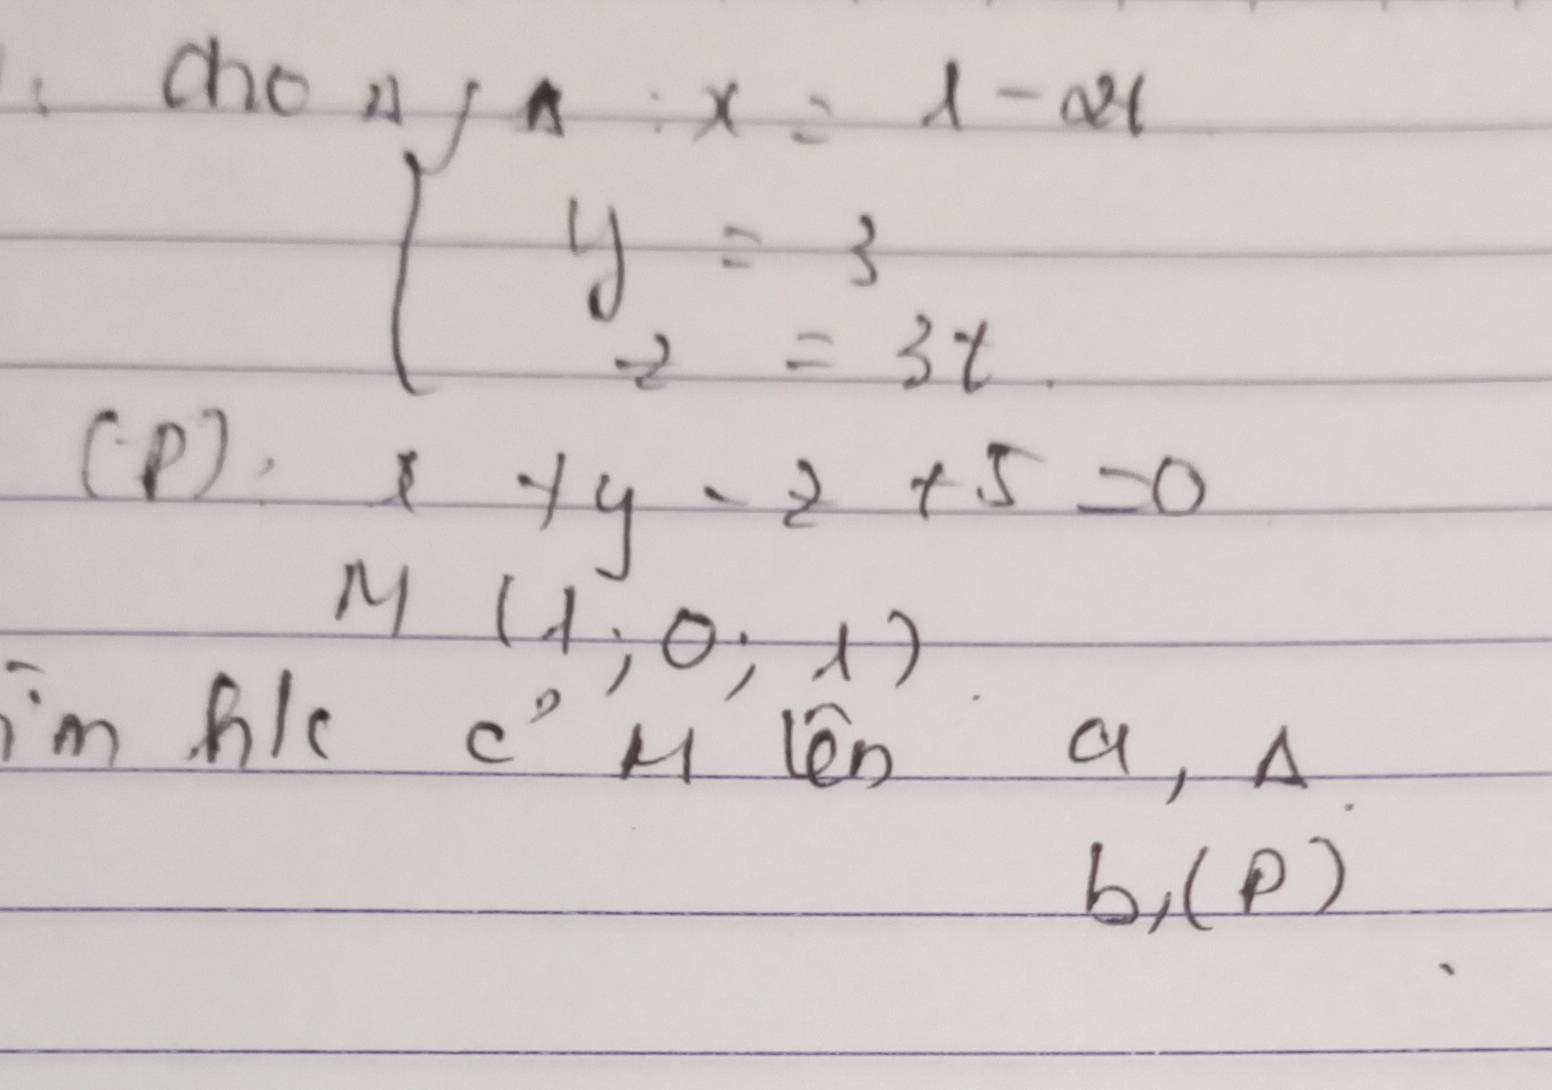 Cho Δ : x = 1 - 2t
y = 3
z = 3t.
(P). x + y - z + 5 = 0
M (1; 0; 1).
ìm h/c c' M lên a, Δ
b, (P)